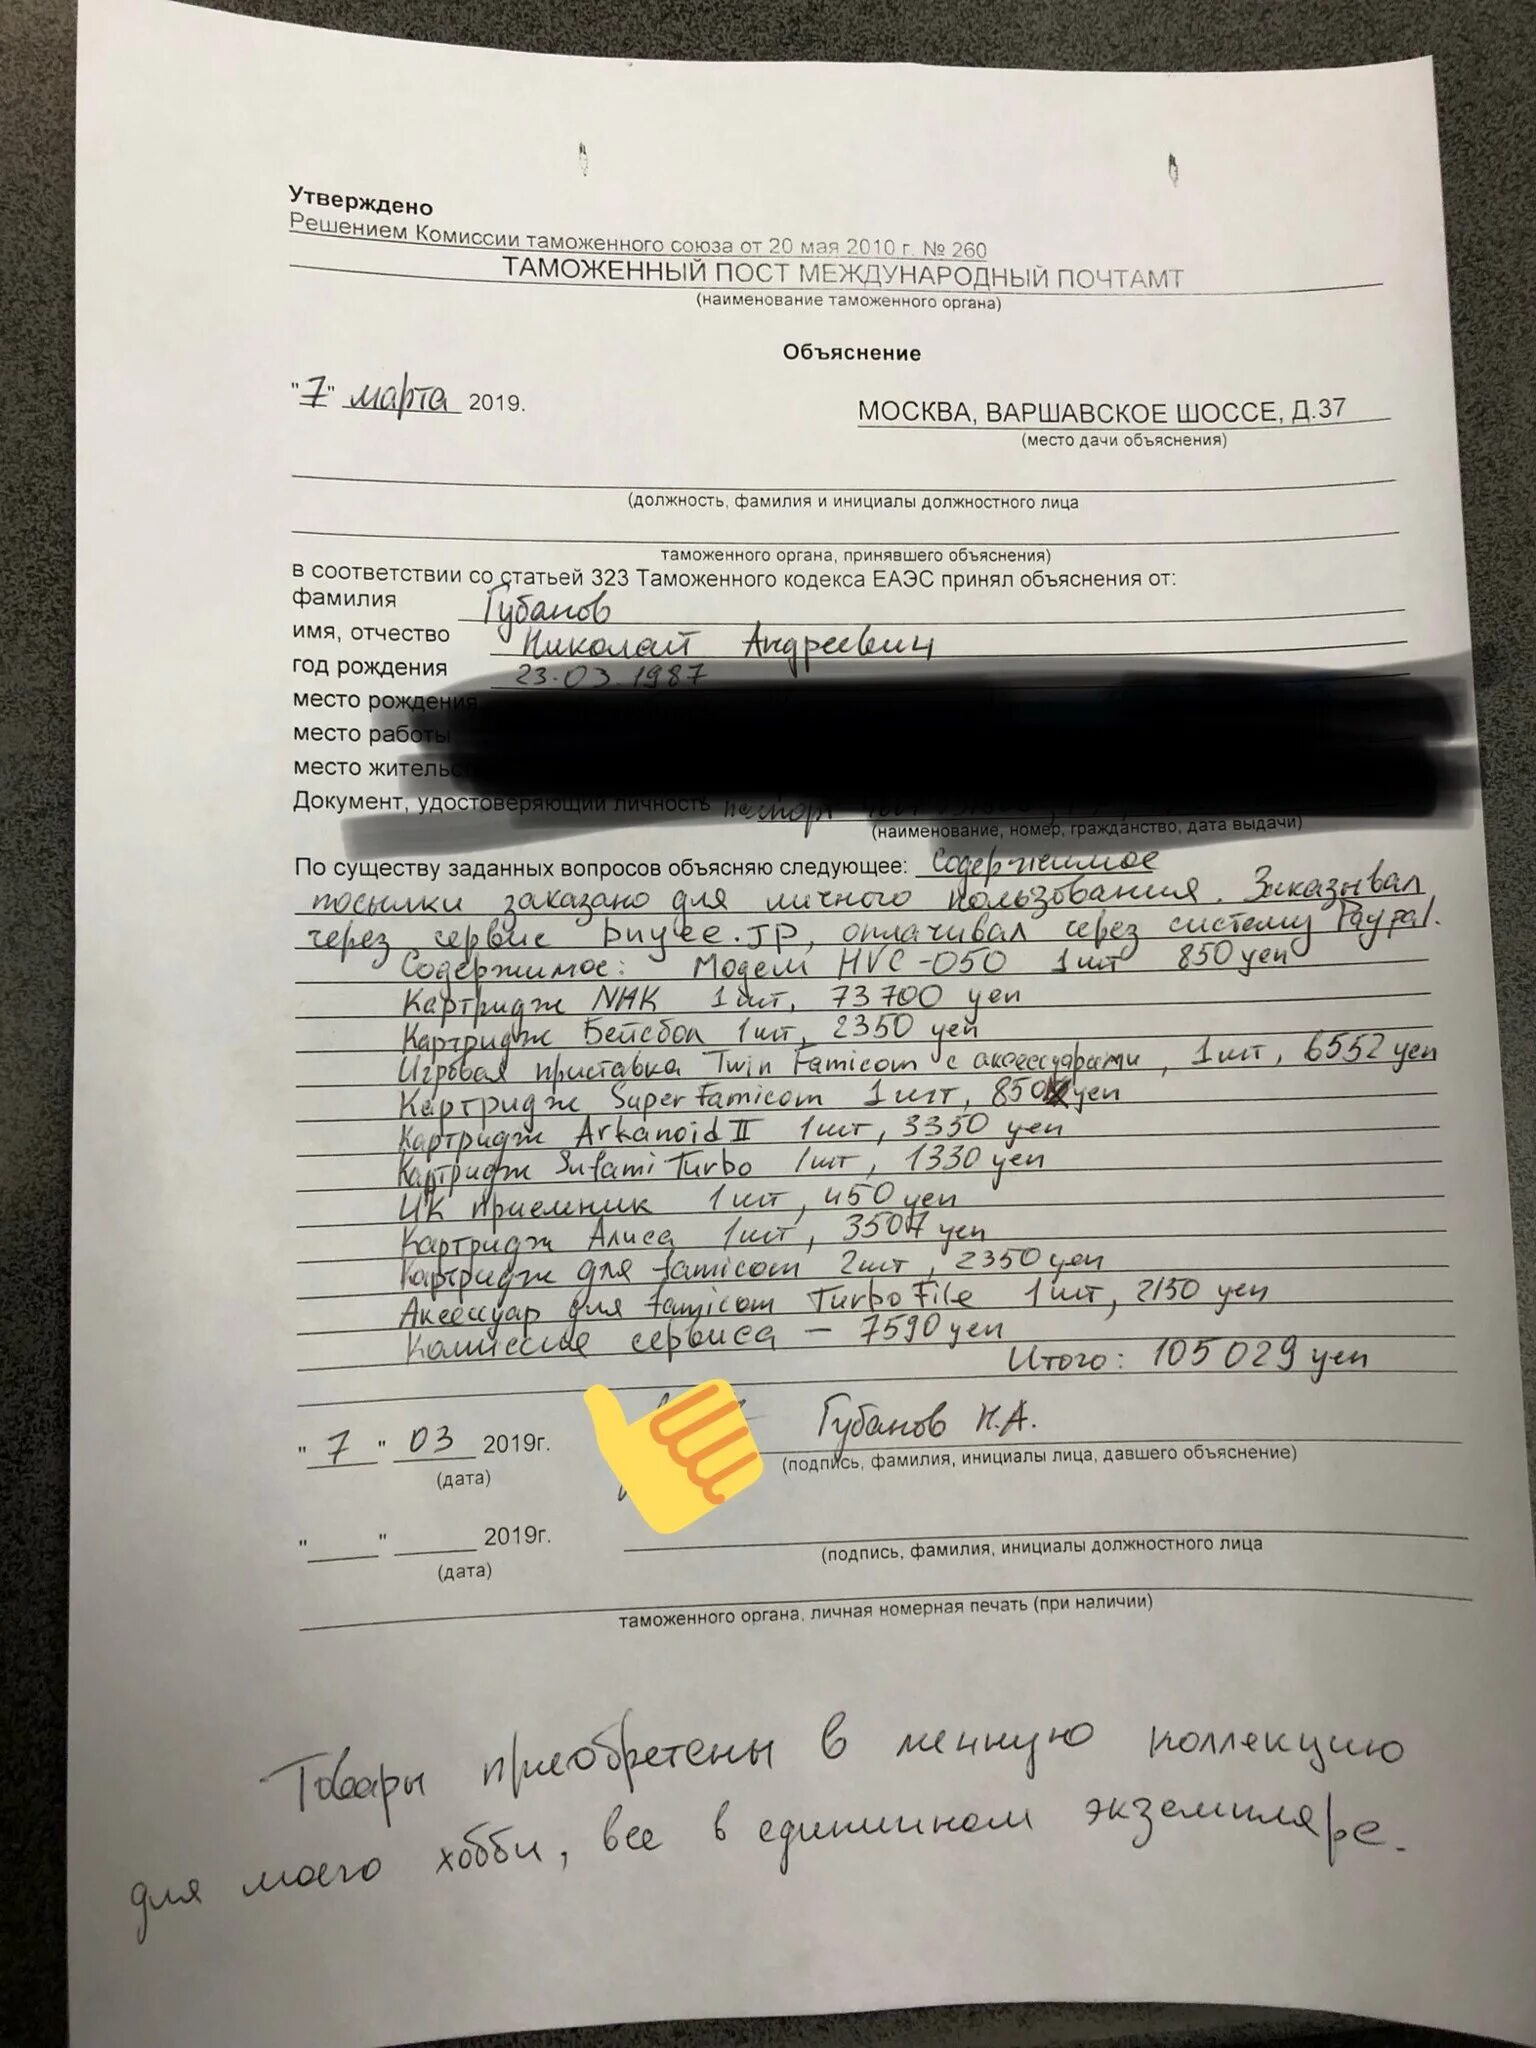 Утверждено
Решением Комиссии таможенного союза от 20 мая 2010 г. № 260
ТАМОЖЕННЫЙ ПОСТ МЕЖДУНАРОДНЫЙ ПОЧТАМТ
(наименование таможенного органа)
Объяснение
"7" марта 2019.
МОСКВА, ВАРШАВСКОЕ ШОССЕ, Д.37
(место дачи объяснения)
(должность, фамилия и инициалы должностного лица
таможенного органа, принявшего объяснения)
в соответствии со статьей 323 Таможенного кодекса ЕАЭС принял объяснения от:
фамилия Губанов
имя, отчество Николай Андреевич
год рождения 23.03.1987
место рождения
место работы
место жительс
Документ, удостоверяющий личность паспорт
(наименование, номер, гражданство, дата выдачи)
По существу заданных вопросов объясняю следующее: Содержимое
посылки заказано для личного пользования. Заказывал
через сервис buyee.jp, оплачивал через систему Paypal.
Содержимое: Модем HVC-050 1шт 850 yen
Картридж NHK 1шт, 73700 yen
Картридж Бейсбол 1шт, 2350 yen
Игровая приставка Twin Famicom с аксессуарами, 1шт, 6552 yen
Картридж Super Famicom 1шт, 850 yen
Картридж Arkanoid II 1шт, 3350 yen
Картридж Sufami Turbo 1шт, 1330 yen
ИК приемник 1шт, 450 yen
Картридж Алиса 1шт, 3507 yen
Картридж для famicom 2шт, 2350 yen
Аксессуар для famicom Turbo File 1шт, 2150 yen
Комиссия сервиса – 7590 yen
Итого: 105029 yen
"7" 03 2019г. Губанов Н.А.
(дата) (подпись, фамилия, инициалы лица, давшего объяснение)
"___" ______ 2019г.
(дата) (подпись, фамилия, инициалы должностного лица
таможенного органа, личная номерная печать (при наличии)
Товары приобретены в личную коллекцию
для моего хобби, все в единичном экземпляре.